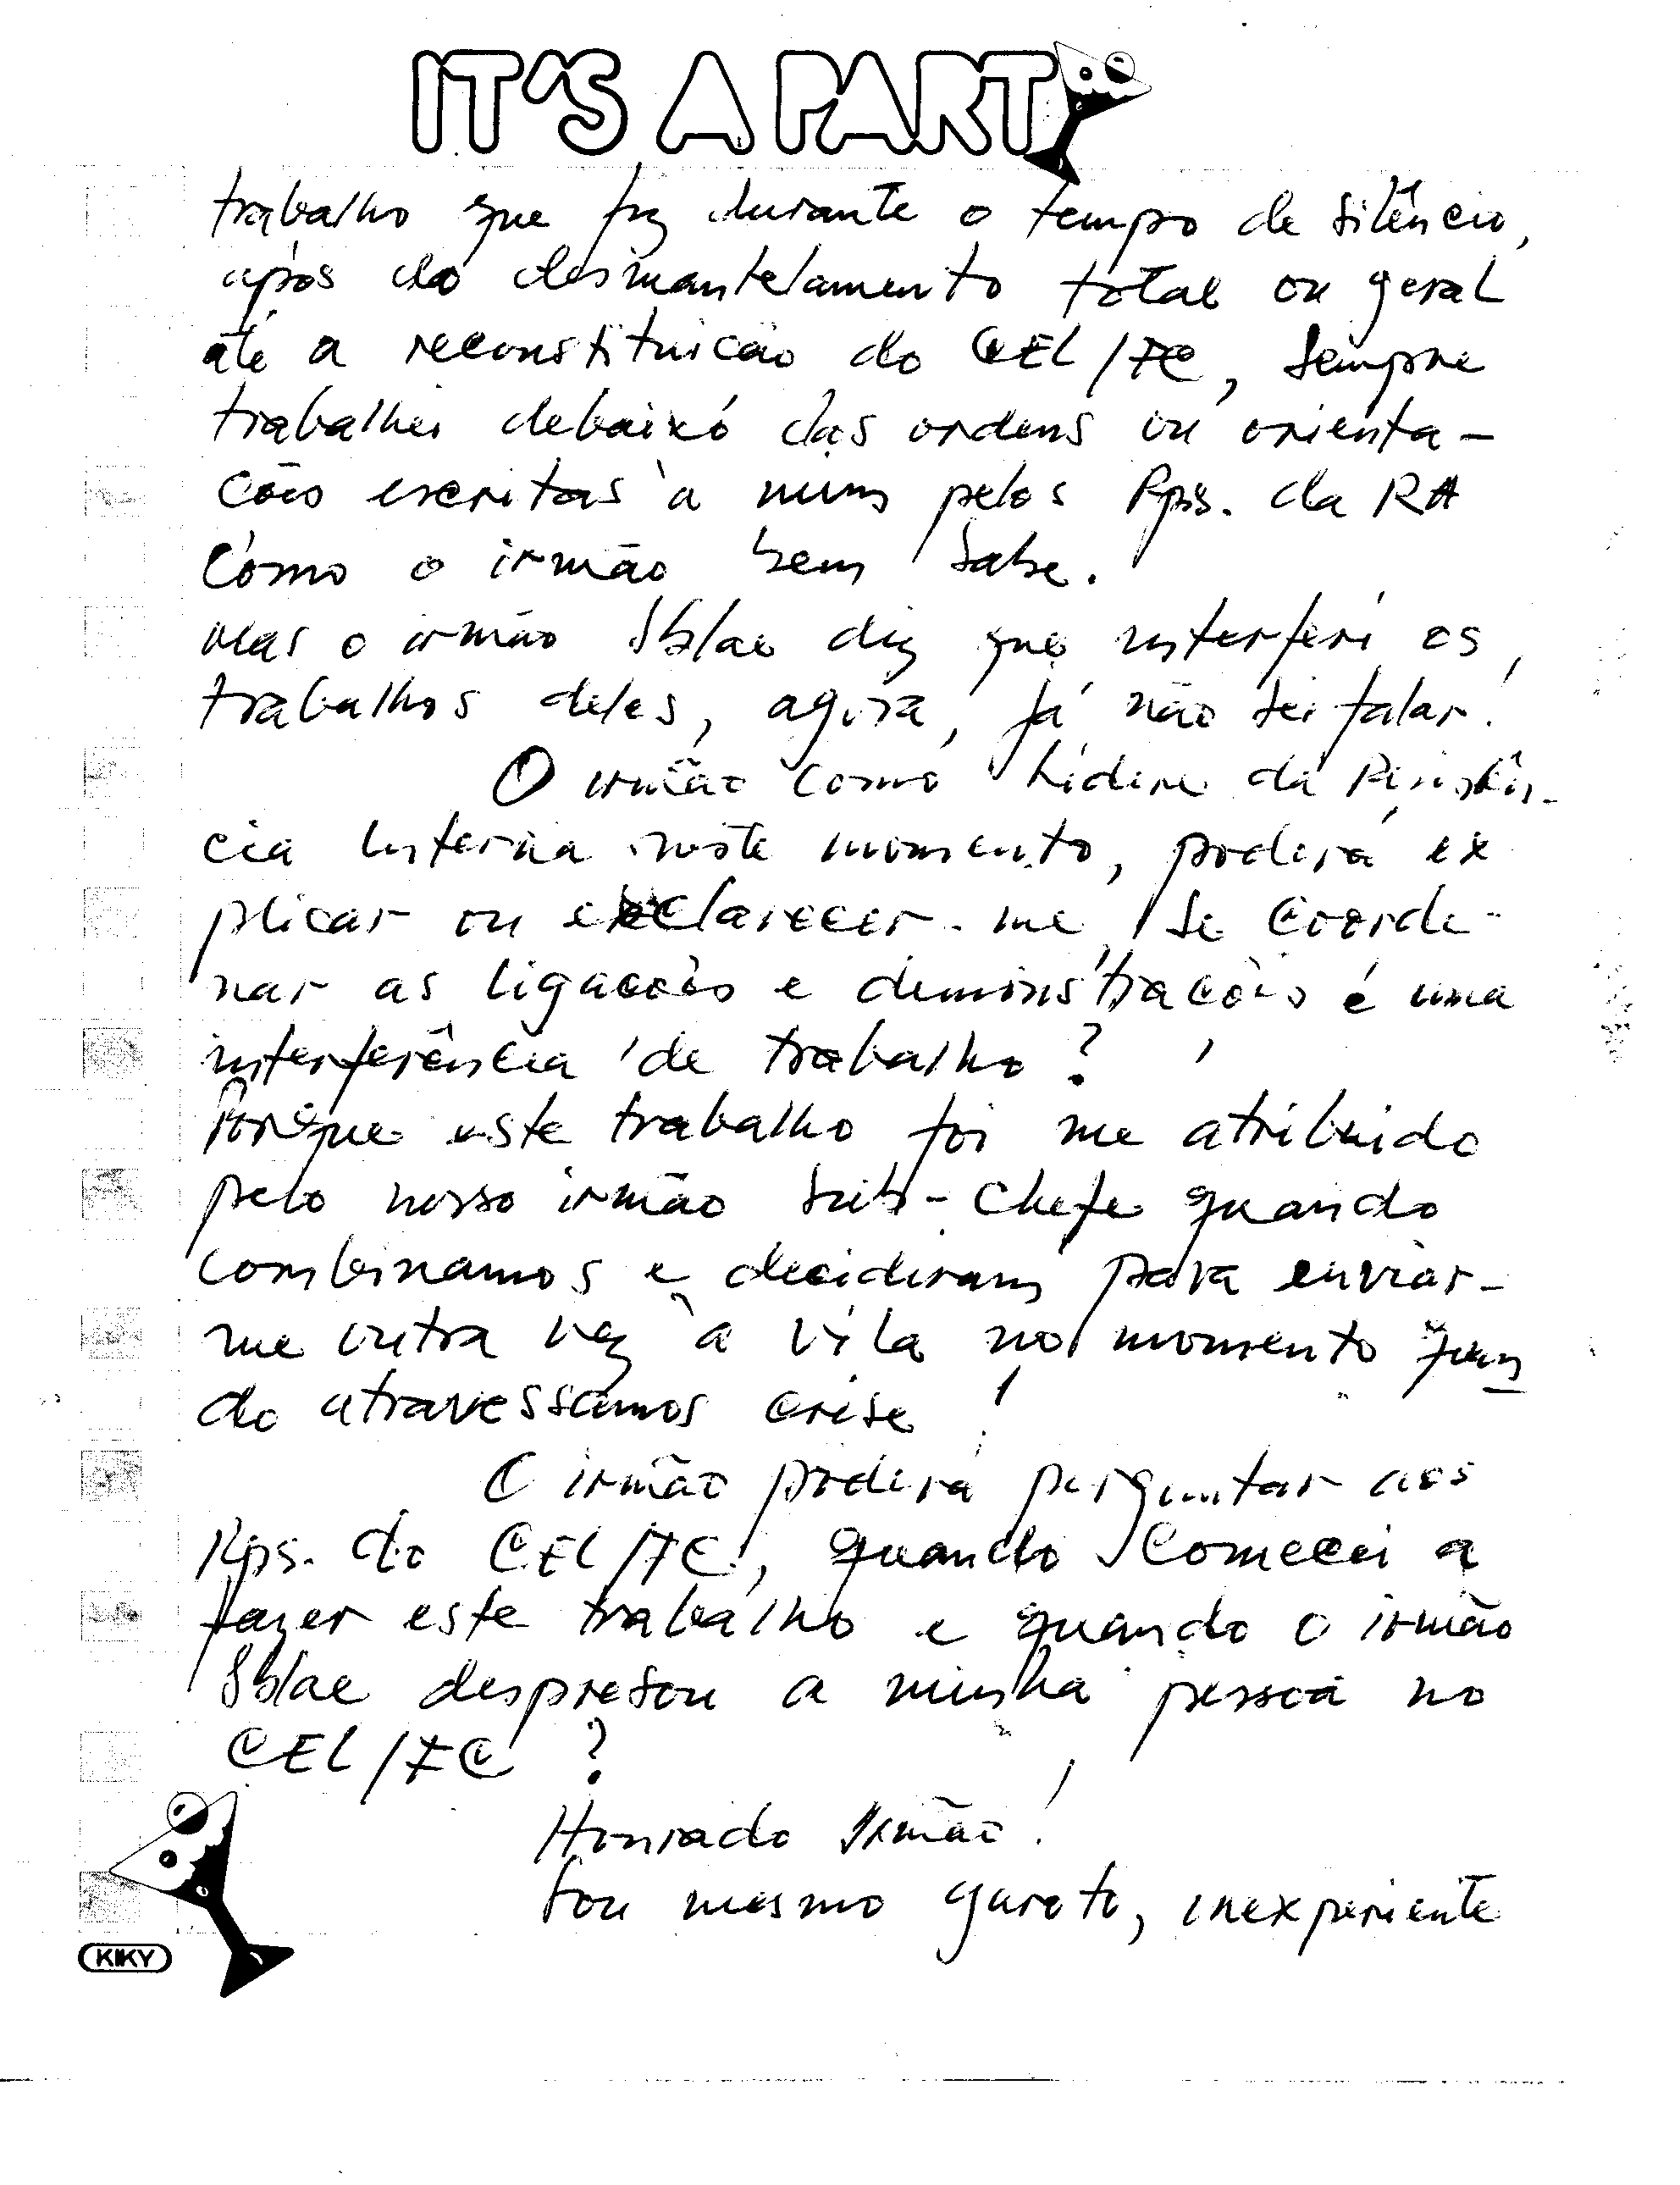 IT'S A PARTY
trabalho que fiz durante o tempo de silêncio,
após do desmantelamento total ou geral
até a reconstituicão do CEL/FC, sempre
trabalhei debaixo das ordens ou orienta-
cões escritas à mim pelos Rps. da RA
como o irmão bem sabe.
Mas o irmão Sblae diz que interferi os
trabalhos deles, agora, já não sei falar.
O irmão como Lidere da Resistên-
cia Interna neste momento, poderá ex
plicar ou esclarecer-me, se coorde-
nar as ligacões e deminstracões é uma
interferência de trabalho?
Porque este trabalho foi me atribuido
pelo nosso irmão Sub-Chefe quando
combinamos e decidiram para enviar-
me outra vez à vila no momento quan
do atravessamos crise!
O irmão poderá perguntar aos
Rps. do CEL/FC, quando comecei a
fazer este trabalho e quando o irmão
Sblae despresou a minha pessoa no
CEL/FC?
Honrado Irmão!
Sou mesmo garoto, inexperiente
KIKY